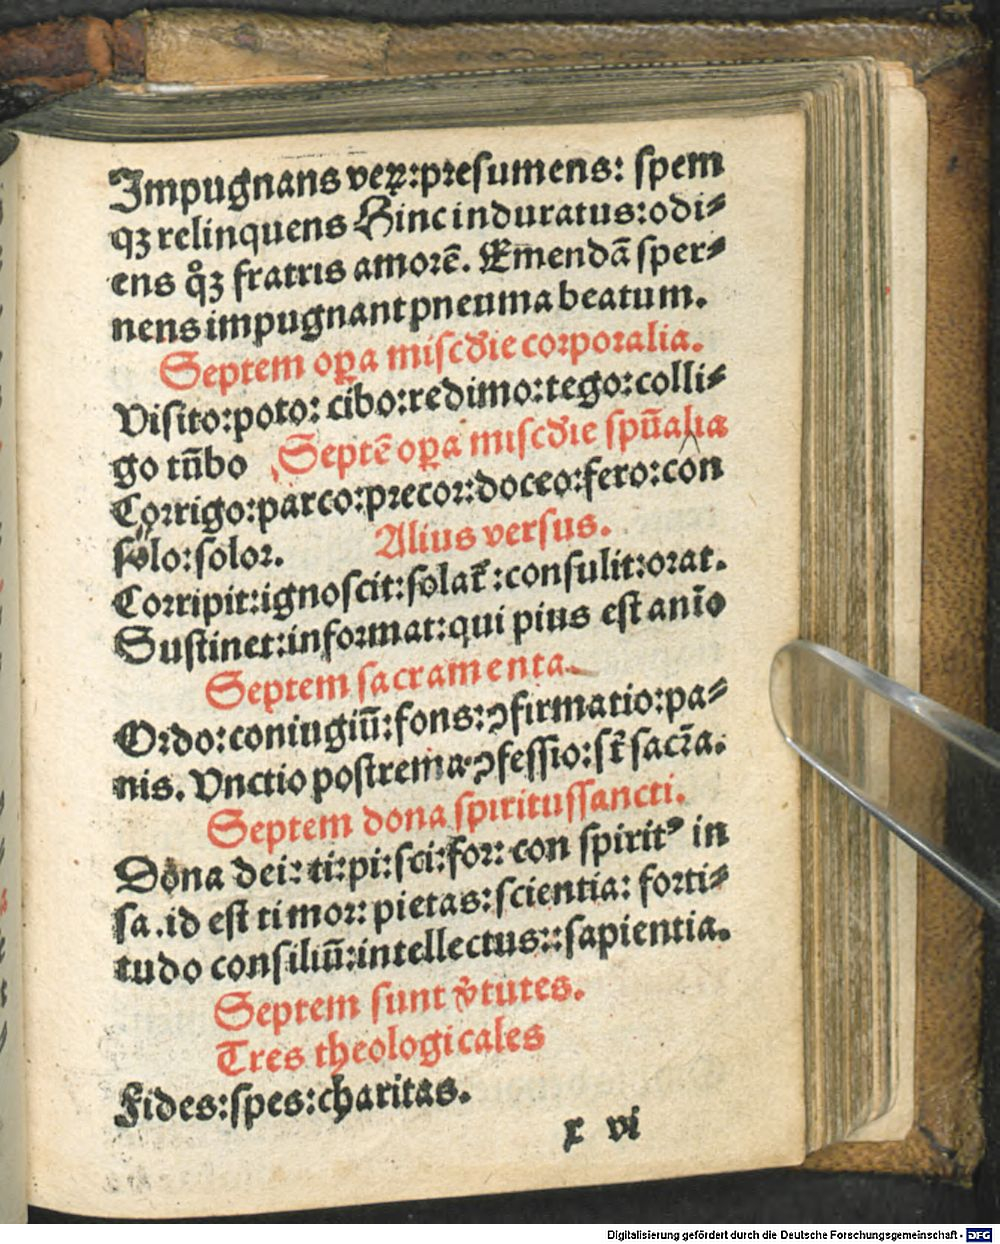 Impugnans veꝝ:presumens: spem
qꝫ relinquens Hinc induratus:odi⸗
ens qͦꝫ fratris amorē. Emendā sper⸗
nens impugnant pneuma beatum.
Septem oꝑa miscd̄ie corporalia.
Visito:poto: cibo:redimo:tego:colli⸗
go tūbo Septē oꝑa miscd̄ie spūalia
Corrigo:parco:precor:doceo:fero:con
solo:solor. Alius versus.
Corripit:ignoscit:solat᷑:consulit:orat.
Sustinet:informat:qui pius est anīo
Septem sacramenta.
Ordo:coniugiū:fons:ꝯfirmatio:pa⸗
nis. Vnctio postrema ꝯfessio:st᷑ sacr̄a.
Septem dona spiritussancti.
Dona dei: ti:pi:sci:for: con spiritꝰ in
sa.id est timor: pietas:scientia: forti⸗
tudo consiliū:intellectus::sapientia.
Septem sunt v̄tutes.
Tres theologicales
Fides:spes:charitas.
x vi
Digitalisierung gefördert durch die Deutsche Forschungsgemeinschaft - DFG